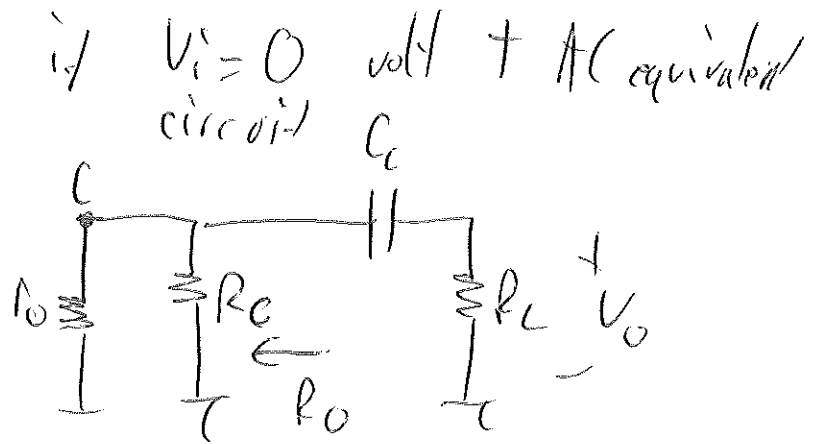 if Vi = 0 volt + AC equivalent
circuit
Cc
C
ro
Rc
RL
+
Vo
-
←
Ro